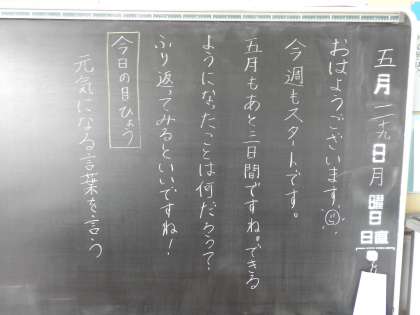 五月二十九日月曜日
日直
おはようございます。
今週もスタートです。
五月もあと三日間ですね。できる
ようになったことは何だろう?
ふり返ってみるといいですね!
今日の目ひょう
元気になる言葉を言う